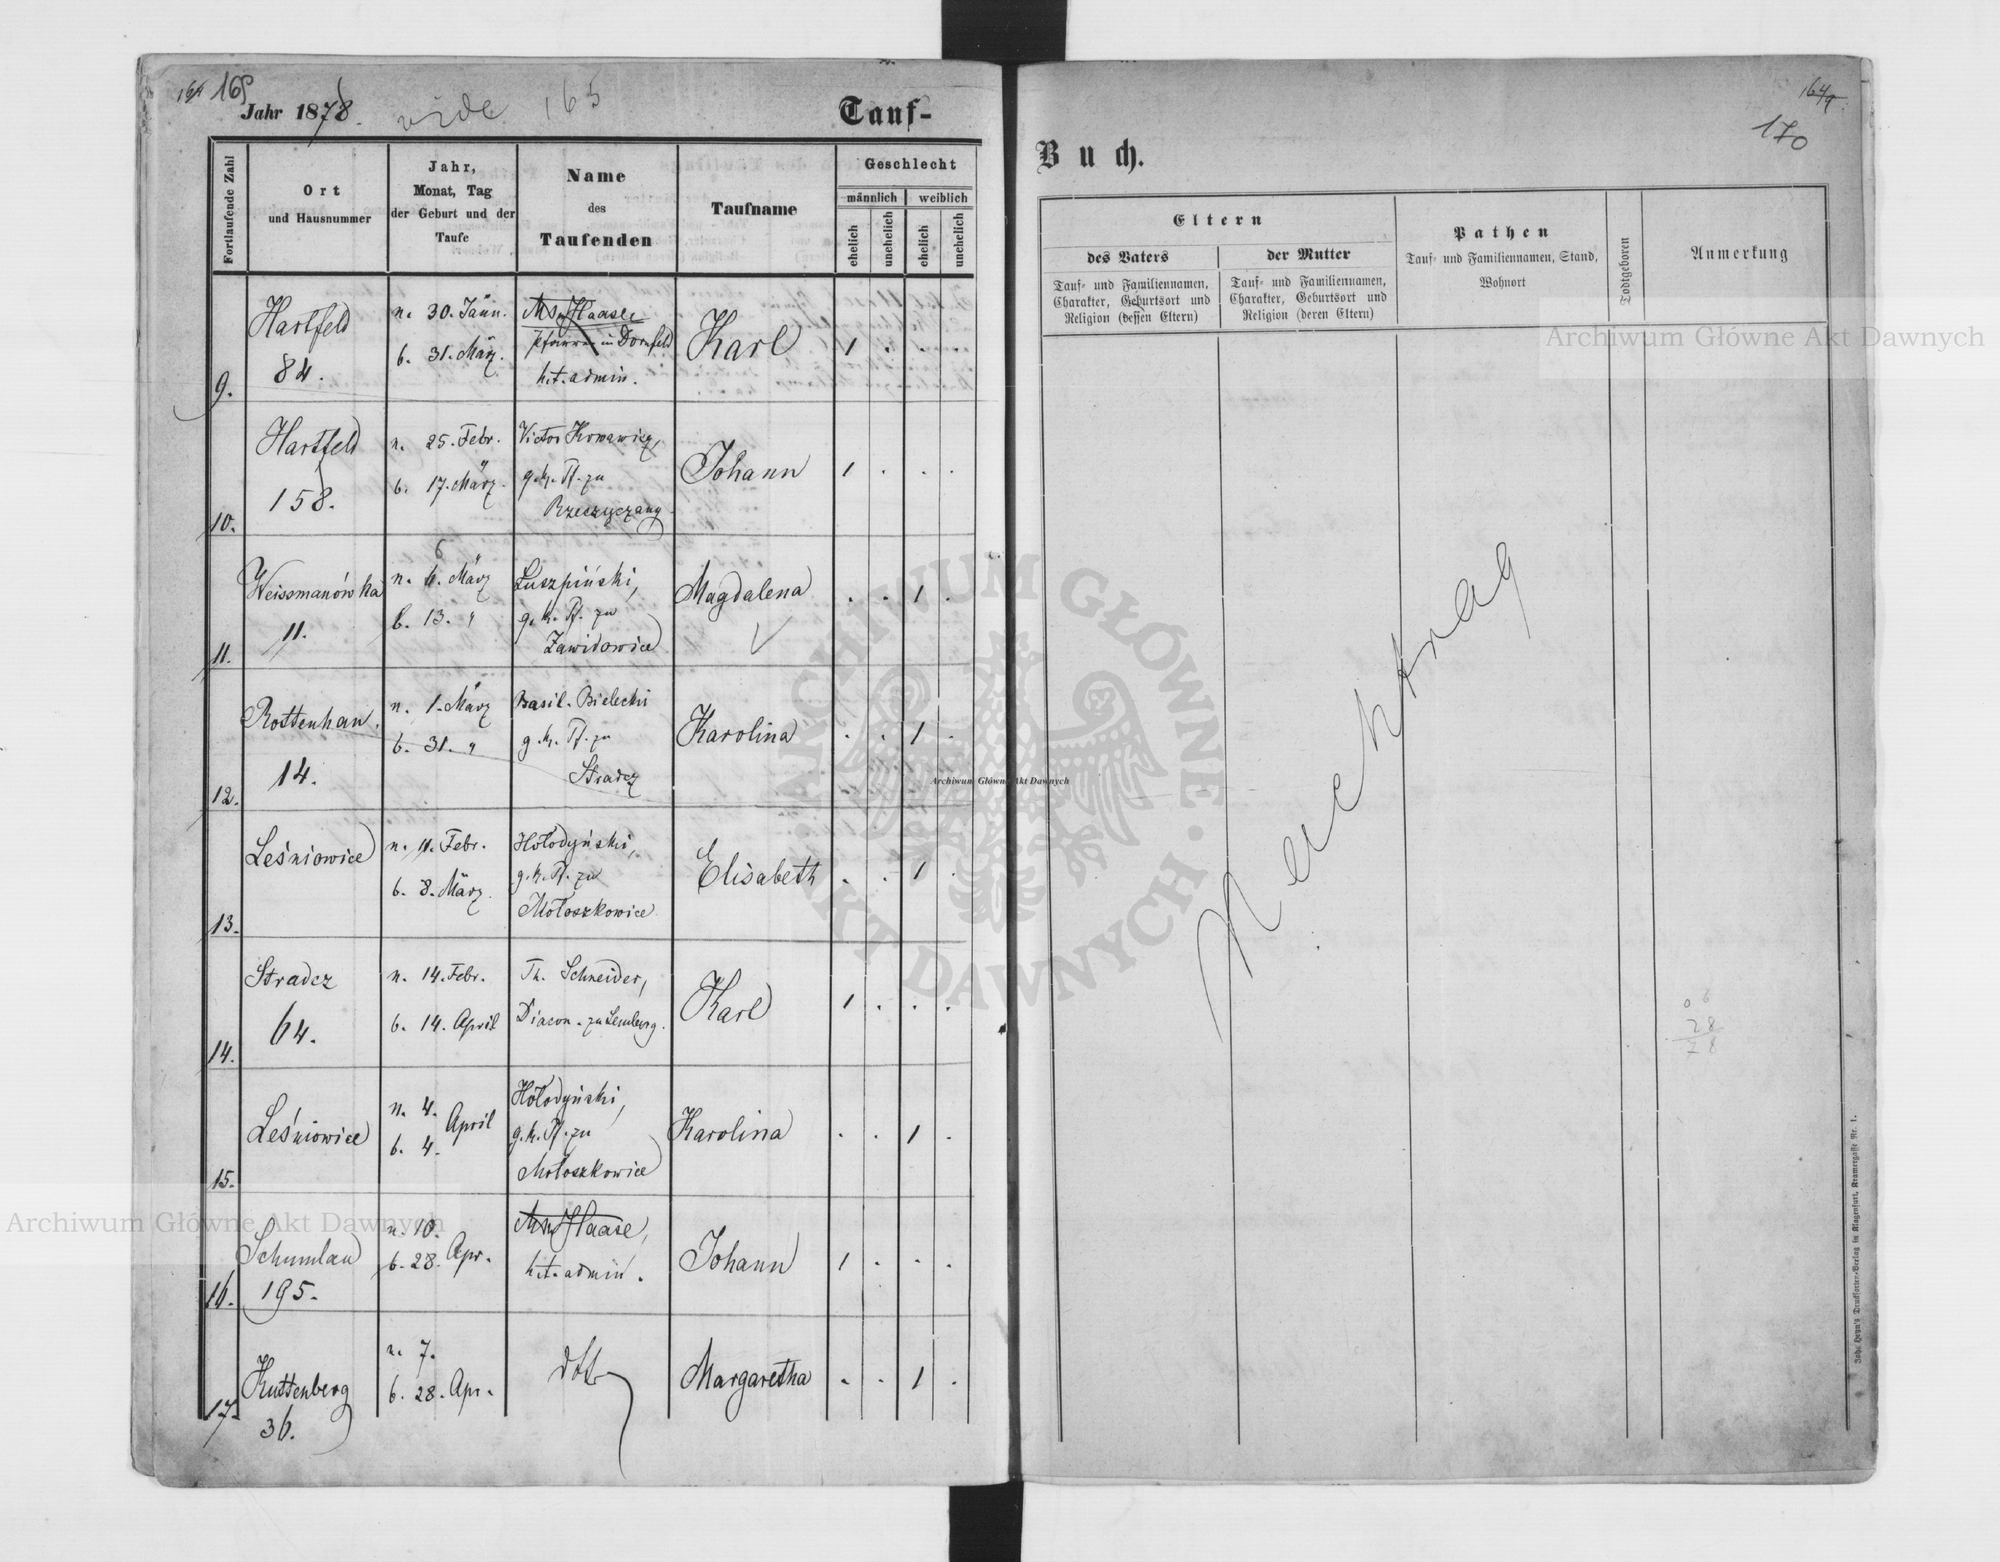 169
Jahr 1878. vide 165
Tauf-
Fortlaufende Zahl
Ort
und Hausnummer
Jahr,
Monat, Tag
der Geburt und der
Taufe
Name
des
Taufenden
Taufname
Geschlecht
männlich weiblich
ehelich unehelich ehelich unehelich
9. Hartfeld 84. n. 30. Jänn. b. 31. März. Haase Pfarrer in Dornfeld h.t. admin. Karl 1 . . .
10. Hartfeld 158. n. 25. Febr. b. 17. März. Victor g.k. Pf. zu Rzeczyczany Johann 1 . . .
11. Weissmanówka 11. n. 6. März b. 13. " Luszpiński, g.k. Pf. zu Zawidowice Magdalena . . 1 .
12. Rottenhan. 14. n. 1. März b. 31. " Basil. Bielecki g.k. Pf. zu Stradcz Karolina . . 1 .
13. Leśniowice n. 11. Febr. b. 8. März. Hołodyński, g.k. Pf. zu Mołoszkowice Elisabeth . . 1 .
14. Stradcz 64. n. 14. Febr. b. 14. April Th. Schneider, Diacon. zu Lemberg. Karl 1 . . .
15. Leśniowice n. 4. b. 4. April Hołodyński, g.k. Pf. zu Mołoszkowice Karolina . . 1 .
16. Schumlau 195. n. 10. b. 28. Apr. Haase, h.t. admin. Johann 1 . . .
17. Kuttenberg 36. n. 7. b. 28. Apr. dtto Margaretha . . 1 .
170
Buch.
Eltern
des Vaters
Tauf- und Familiennamen,
Charakter, Geburtsort und
Religion (dessen Eltern)
der Mutter
Tauf- und Familiennamen,
Charakter, Geburtsort und
Religion (deren Eltern)
Pathen
Tauf- und Familiennamen, Stand,
Wohnort
Todtgeboren
Anmerkung
Nachtrag
28
78
Joh. Heyn's Drucksorten-Verlag in Klagenfurt, Kramergasse Nr. 1.
Archiwum Główne Akt Dawnych
Archiwum Główne Akt Dawnych
Archiwum Główne Akt Dawnych
ARCHIWUM GŁÓWNE · AKT DAWNYCH ·